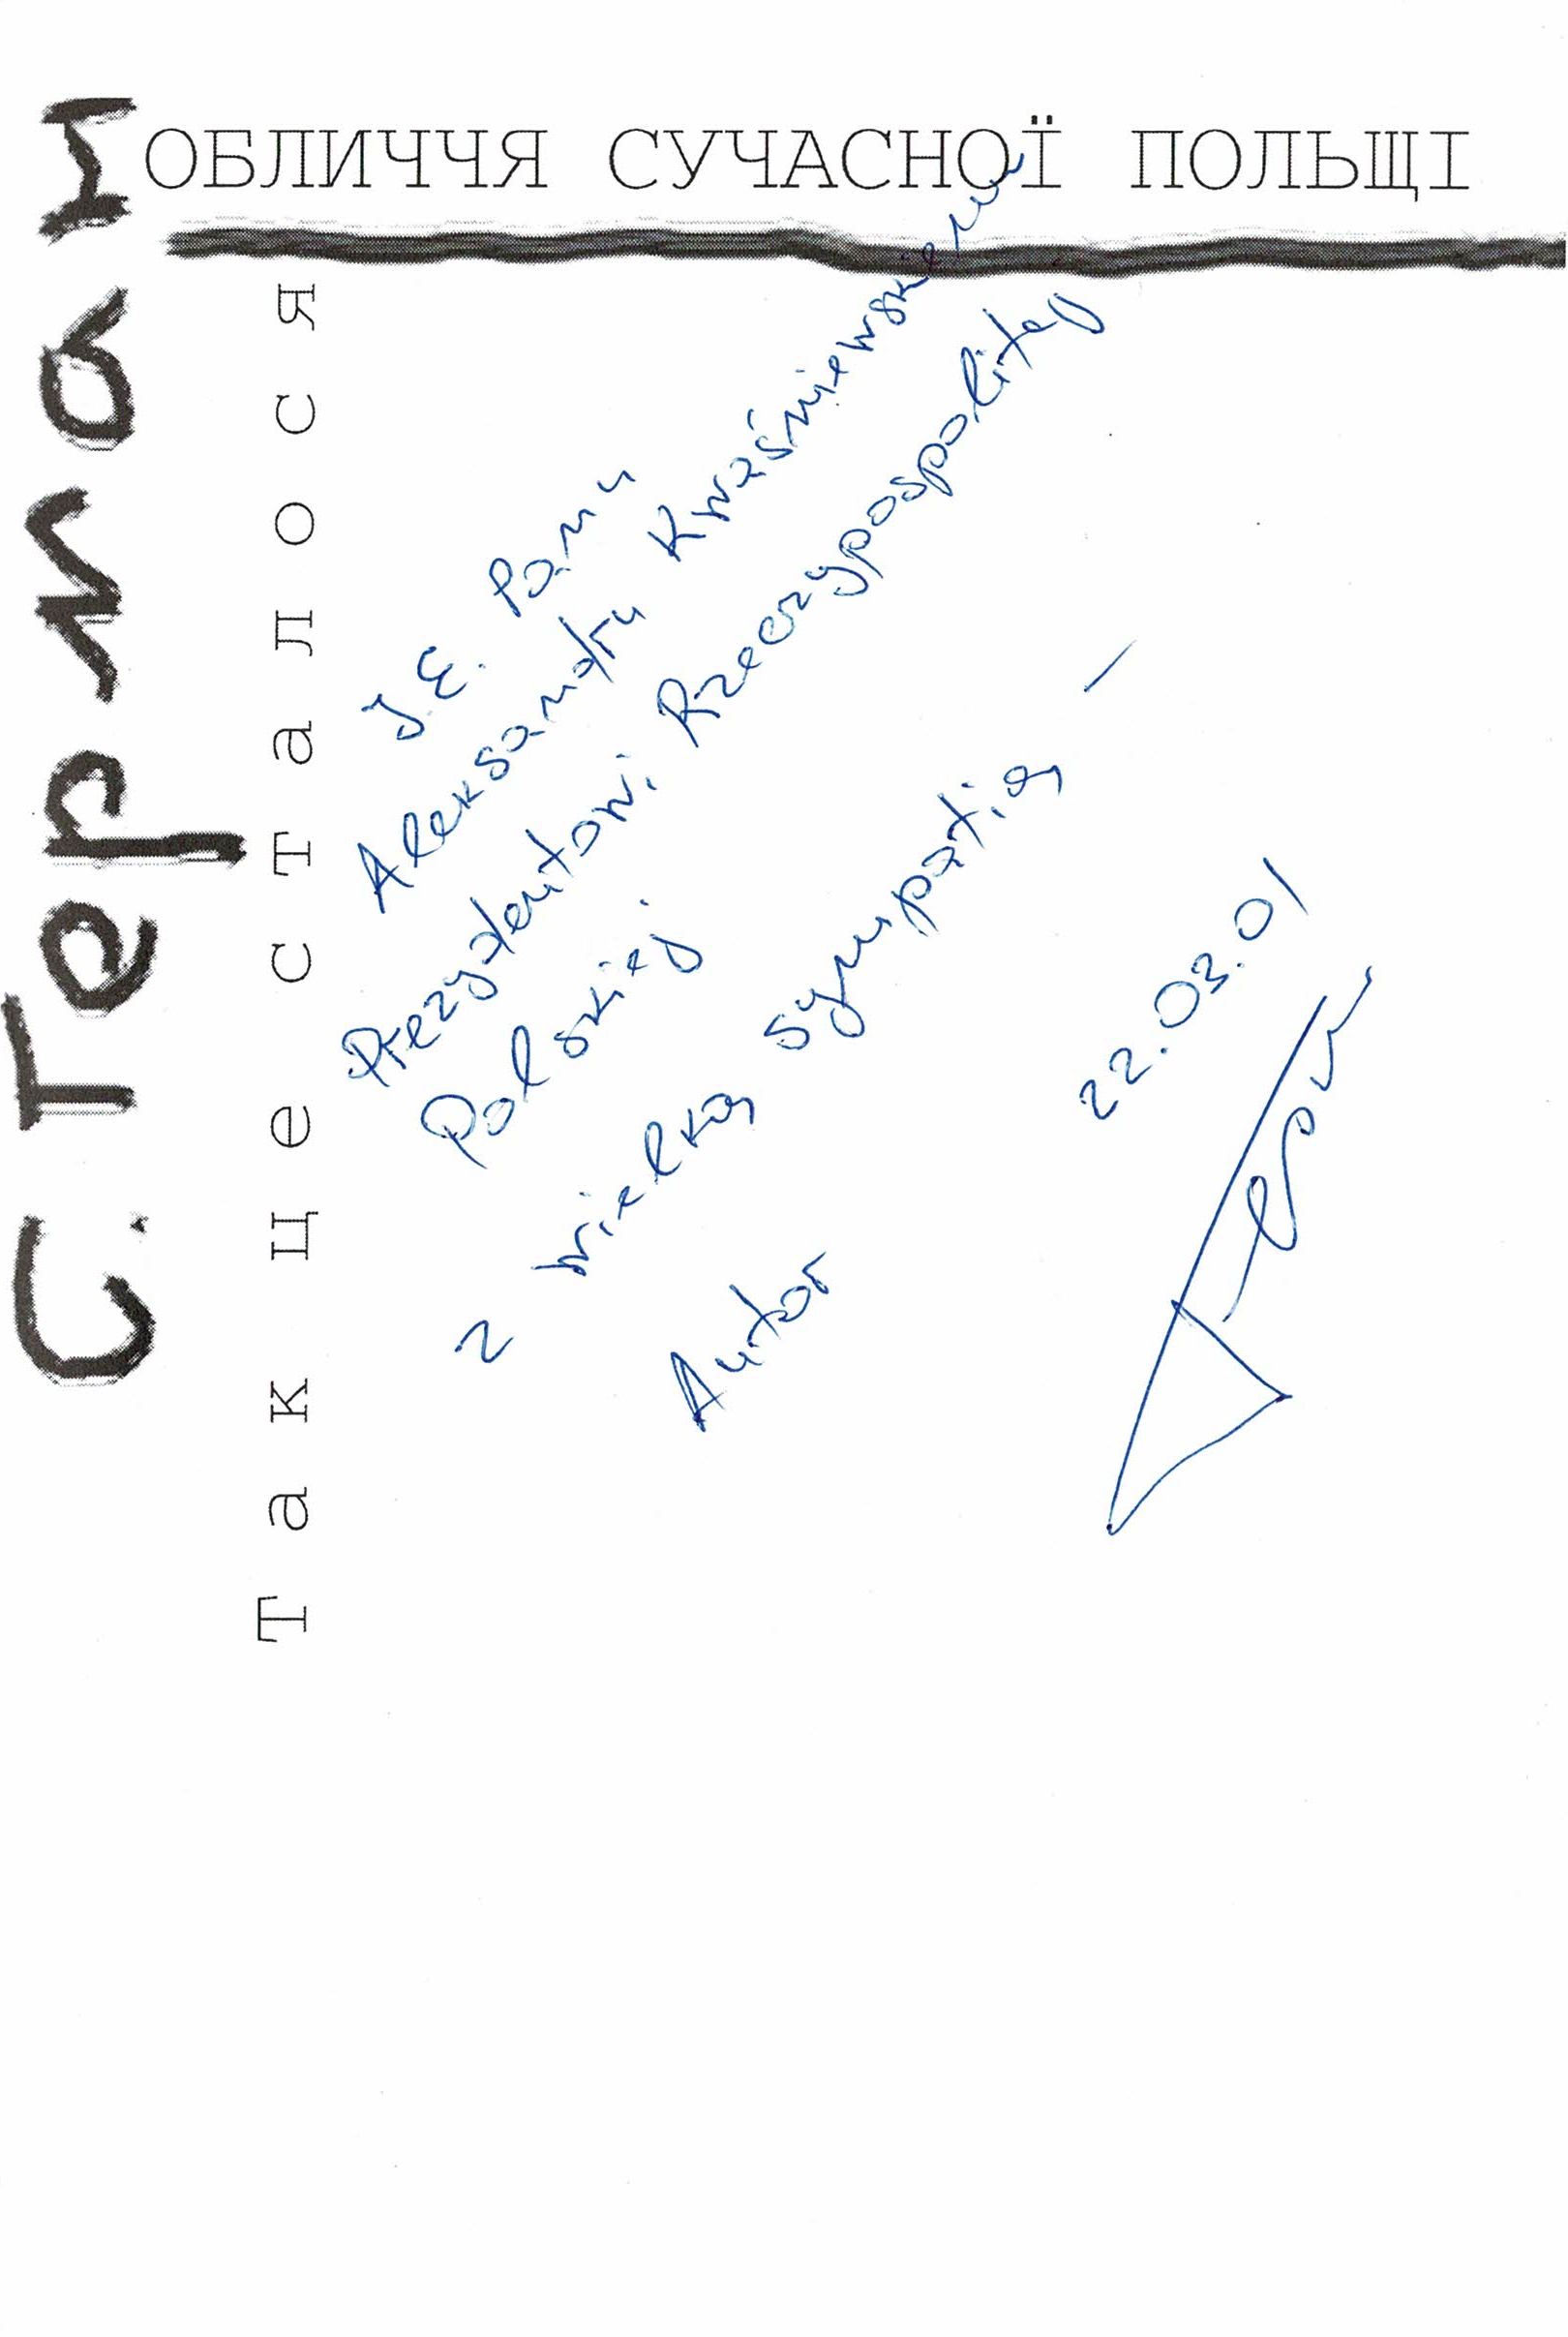 С.
ОБЛИЧЧЯ СУЧАСНОЇ ПОЛЬЩІ
Так це сталося
J.E. Panu
Aleksandru Kwaśniewskiemu
Prezydentowi Rzeczypospolitej
Polskiej
z wielką sympatią –
Autor
22.03.01